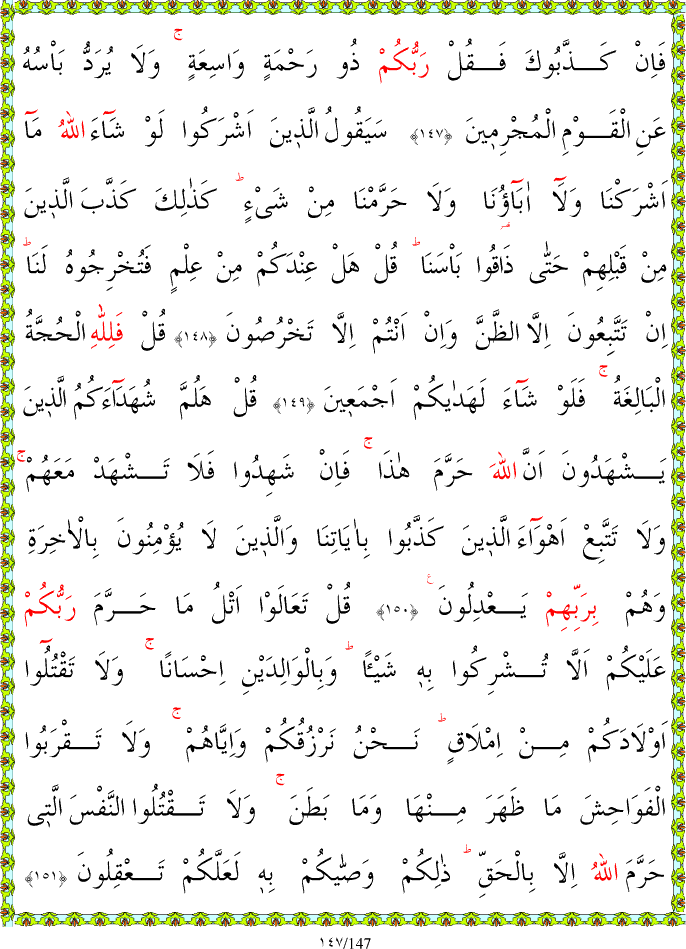 فَاِنْ كَذَّبُوكَ فَقُلْ رَبُّكُمْ ذُو رَحْمَةٍ وَاسِعَةٍ ۚ وَلَا يُرَدُّ بَاْسُهُ
عَنِ الْقَوْمِ الْمُجْرِم۪ينَ ﴿١٤٧﴾ سَيَقُولُ الَّذ۪ينَ اَشْرَكُوا لَوْ شَٓاءَ اللّٰهُ مَٓا
اَشْرَكْنَا وَلَٓا اٰبَٓاؤُ۬نَا وَلَا حَرَّمْنَا مِنْ شَيْءٍ ۜ كَذٰلِكَ كَذَّبَ الَّذ۪ينَ
مِنْ قَبْلِهِمْ حَتّٰى ذَاقُوا بَاْسَنَا ۜ قُلْ هَلْ عِنْدَكُمْ مِنْ عِلْمٍ فَتُخْرِجُوهُ لَنَا ۜ
اِنْ تَتَّبِعُونَ اِلَّا الظَّنَّ وَاِنْ اَنْتُمْ اِلَّا تَخْرُصُونَ ﴿١٤٨﴾ قُلْ فَلِلّٰهِ الْحُجَّةُ
الْبَالِغَةُ ۚ فَلَوْ شَٓاءَ لَهَدٰيكُمْ اَجْمَع۪ينَ ﴿١٤٩﴾ قُلْ هَلُمَّ شُهَدَٓاءَكُمُ الَّذ۪ينَ
يَشْهَدُونَ اَنَّ اللّٰهَ حَرَّمَ هٰذَا ۚ فَاِنْ شَهِدُوا فَلَا تَشْهَدْ مَعَهُمْ ۚ
وَلَا تَتَّبِعْ اَهْوَٓاءَ الَّذ۪ينَ كَذَّبُوا بِاٰيَاتِنَا وَالَّذ۪ينَ لَا يُؤْمِنُونَ بِالْاٰخِرَةِ
وَهُمْ بِرَبِّهِمْ يَعْدِلُونَ ﴿١٥٠﴾ قُلْ تَعَالَوْا اَتْلُ مَا حَرَّمَ رَبُّكُمْ
عَلَيْكُمْ اَلَّا تُشْرِكُوا بِه۪ شَيْـًٔا ۜ وَبِالْوَالِدَيْنِ اِحْسَانًا ۚ وَلَا تَقْتُلُٓوا
اَوْلَادَكُمْ مِنْ اِمْلَاقٍ ۜ نَحْنُ نَرْزُقُكُمْ وَاِيَّاهُمْ ۚ وَلَا تَقْرَبُوا
الْفَوَاحِشَ مَا ظَهَرَ مِنْهَا وَمَا بَطَنَ ۚ وَلَا تَقْتُلُوا النَّفْسَ الَّت۪ي
حَرَّمَ اللّٰهُ اِلَّا بِالْحَقِّ ۜ ذٰلِكُمْ وَصّٰيكُمْ بِه۪ لَعَلَّكُمْ تَعْقِلُونَ ﴿١٥١﴾
١٤٧/147